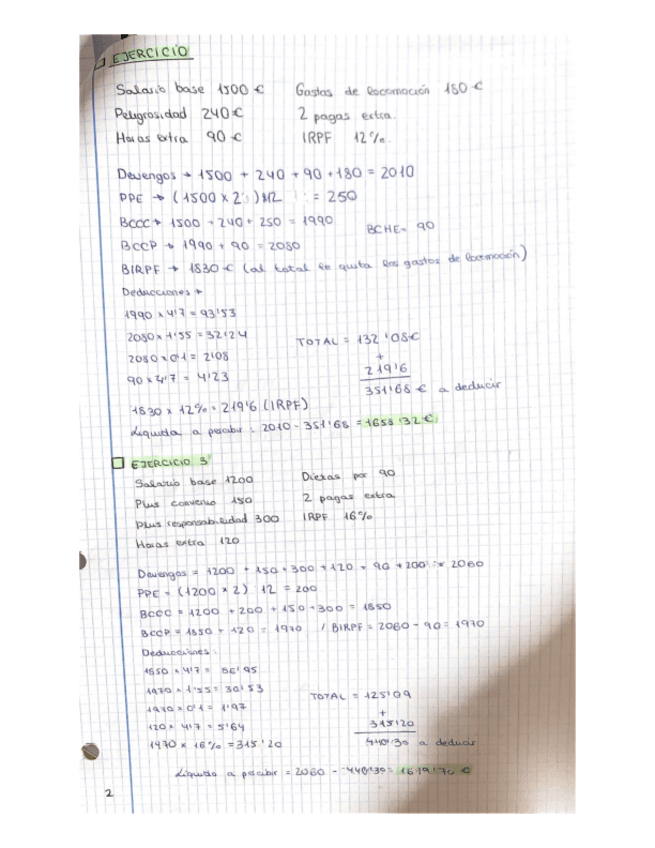 EJERCICIO
Salario base 1500 € Gastos de locomoción 180 €
Peligrosidad 240 € 2 pagas extra.
Horas extra 90 € IRPF 12%.
Devengos → 1500 + 240 + 90 + 180 = 2010
PPE → (1500 x 2) 12 = 250
BCCC → 1500 + 240 + 250 = 1990
BCHE = 90
BCCP → 1990 + 90 = 2080
BIRPF → 1830 € (al total le quita los gastos de locomoción)
Deducciones →
1990 x 4'7 = 93'53
2080 x 1'55 = 32'24
TOTAL = 132'08 €
2080 x 0'1 = 2'08
+
90 x 4'7 = 4'23
219'6
351'68 € a deducir
1830 x 12% = 219'6 (IRPF)
Líquida a percibir: 2010 - 351'68 = 1658'32 €
EJERCICIO 3
Salario base 1200 Dietas por 90
Plus convenio 150 2 pagas extra
Plus responsabilidad 300 IRPF 16%
Horas extra 120
Devengos = 1200 + 150 + 300 + 120 + 90 + 200 = 2060
PPE = (1200 x 2) 12 = 200
BCCC = 1200 + 200 + 150 + 300 = 1850
BCCP = 1850 + 120 = 1970 / BIRPF = 2060 - 90 = 1970
Deducciones:
1850 x 4'7 = 86'95
1970 x 1'55 = 30'53
TOTAL = 125'09
1970 x 0'1 = 1'97
+
120 x 4'7 = 5'64
315'20
1970 x 16% = 315'20
440'30 a deducir
Líquida a percibir = 2060 - 440'30 = 1619'70 €
2